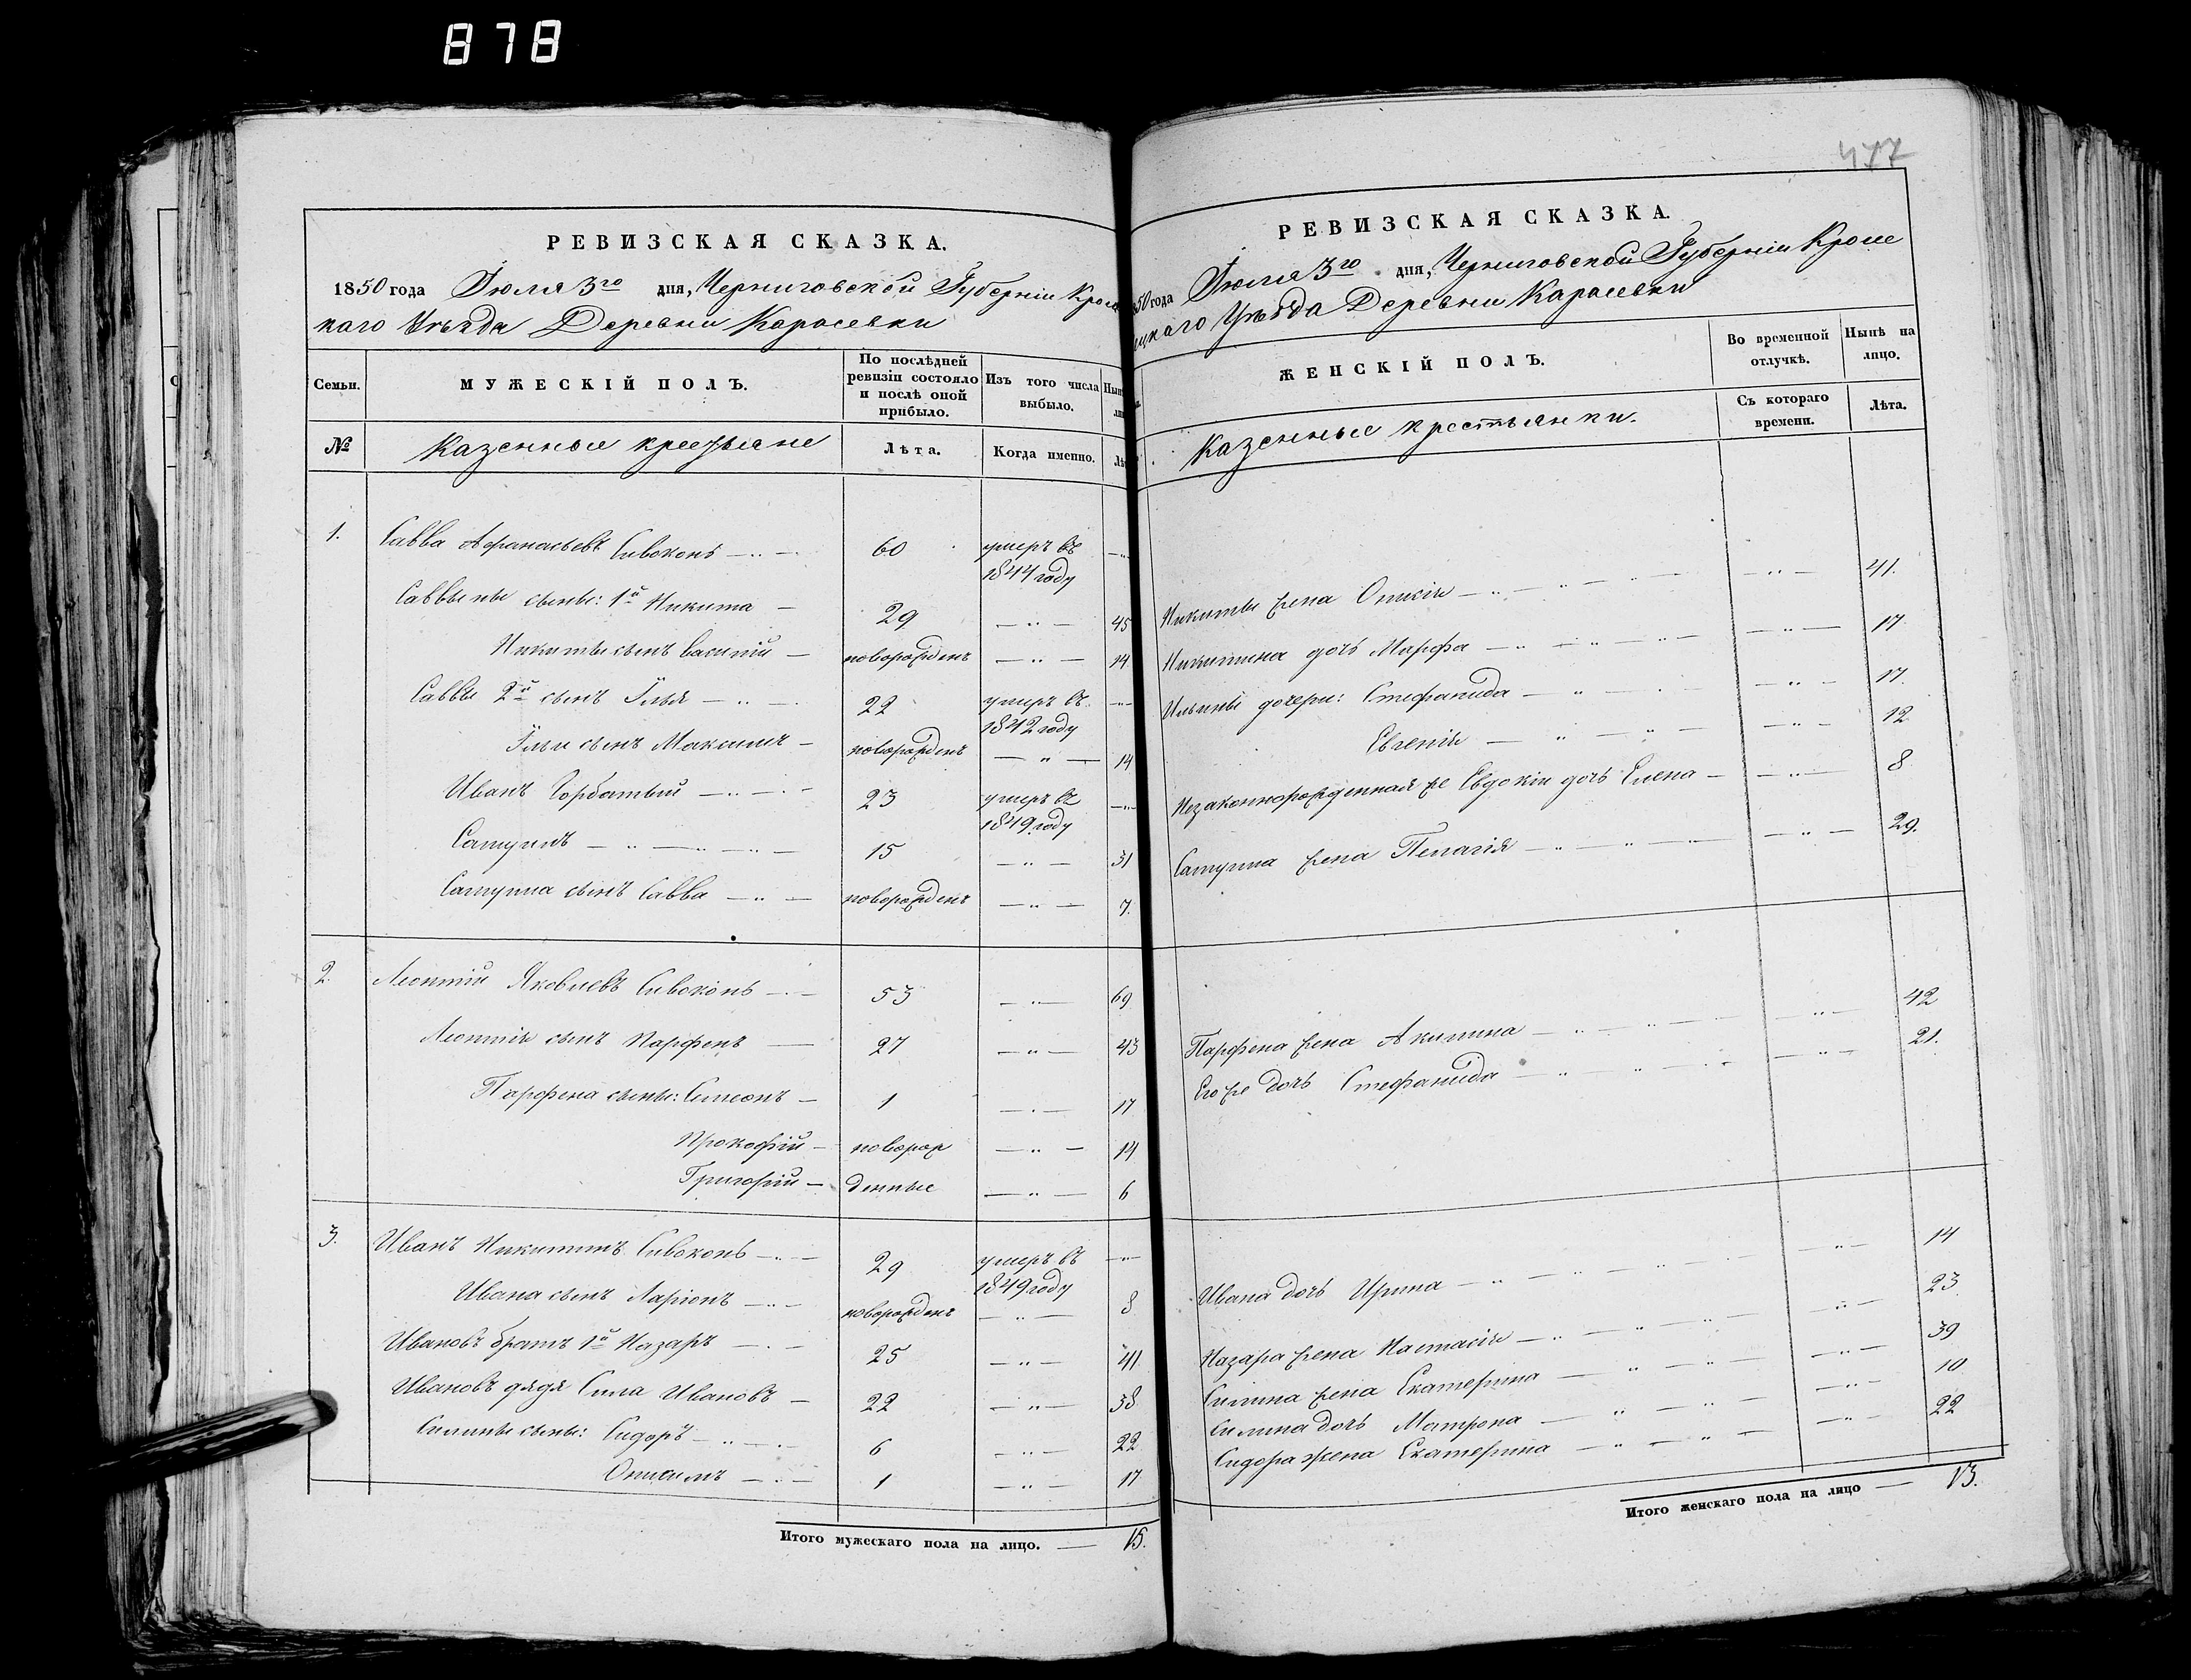 878
477
РЕВИЗСКАЯ СКАЗКА.
1850 года Іюля 3го дня, Черниговской Губерніи Кроле
каго Уѣзда Деревни Карасевки
Семьи.
МУЖЕСКІЙ ПОЛЪ.
По послѣдней ревизіи состояло и послѣ оной прибыло.
Изъ того числа выбыло.
№
Казенные крестьяне
Лѣта.
Когда именно.
1. Савва Афанасьевъ Сивоконь 60 умеръ въ
1844 году
Саввины сыны: 1й Никита 29 45
Никиты сынъ Василій новорожденъ 14
Саввы 2й сынъ Илья 22 умеръ въ
1842 году
Ильи сынъ Максимъ новорожденъ 14
Иванъ Горбатый 23 умеръ въ
1849 году
Самуилъ 15 31
Самуила сынъ Савва новорожденъ 7.
2. Леонтій Яковлевъ Сивоконь 53 69
Леонтія сынъ Парфенъ 27 43
Парфена сыны: Симеонъ 1 17
Прокофій новорож 14
Григорій денные 6
3. Иванъ Никитинъ Сивоконь 29 умеръ въ
1849 году
Ивана сынъ Ларіонъ новорожденъ 8
Ивановъ братъ 1й Назаръ 25 41
Ивановъ дядя Сила Ивановъ 22 38
Силины сыны: Сидоръ 6 22
Онисимъ 1 17
Итого мужескаго пола на лицо. — 15.
РЕВИЗСКАЯ СКАЗКА.
50 года Іюля 3го дня, Черниговской Губерніи Кроле
цкаго Уѣзда Деревни Карасевки
ЖЕНСКІЙ ПОЛЪ.
Во временной отлучкѣ.
Нынѣ на лицо.
Казенные крестьянки.
Съ котораго времени.
Лѣта.
Никиты жена Оников 41.
Никитина дочь Марфа 17.
Ильины дочери: Стефанида 17.
Евгенія 12
Незаконнорожденная же Евдокіи дочь Елена 8
Самуила жена Пелагія 29.
Парфена жена Акилина 42
Его же дочь Стефанида 21.
Ивана дочь Ирина 14
Назара жена Настасія 23
Силина жена Екатерина 39
Силина дочь Матрона 10
Сидора жена Екатерина 22
Итого женскаго пола на лицо — 13.